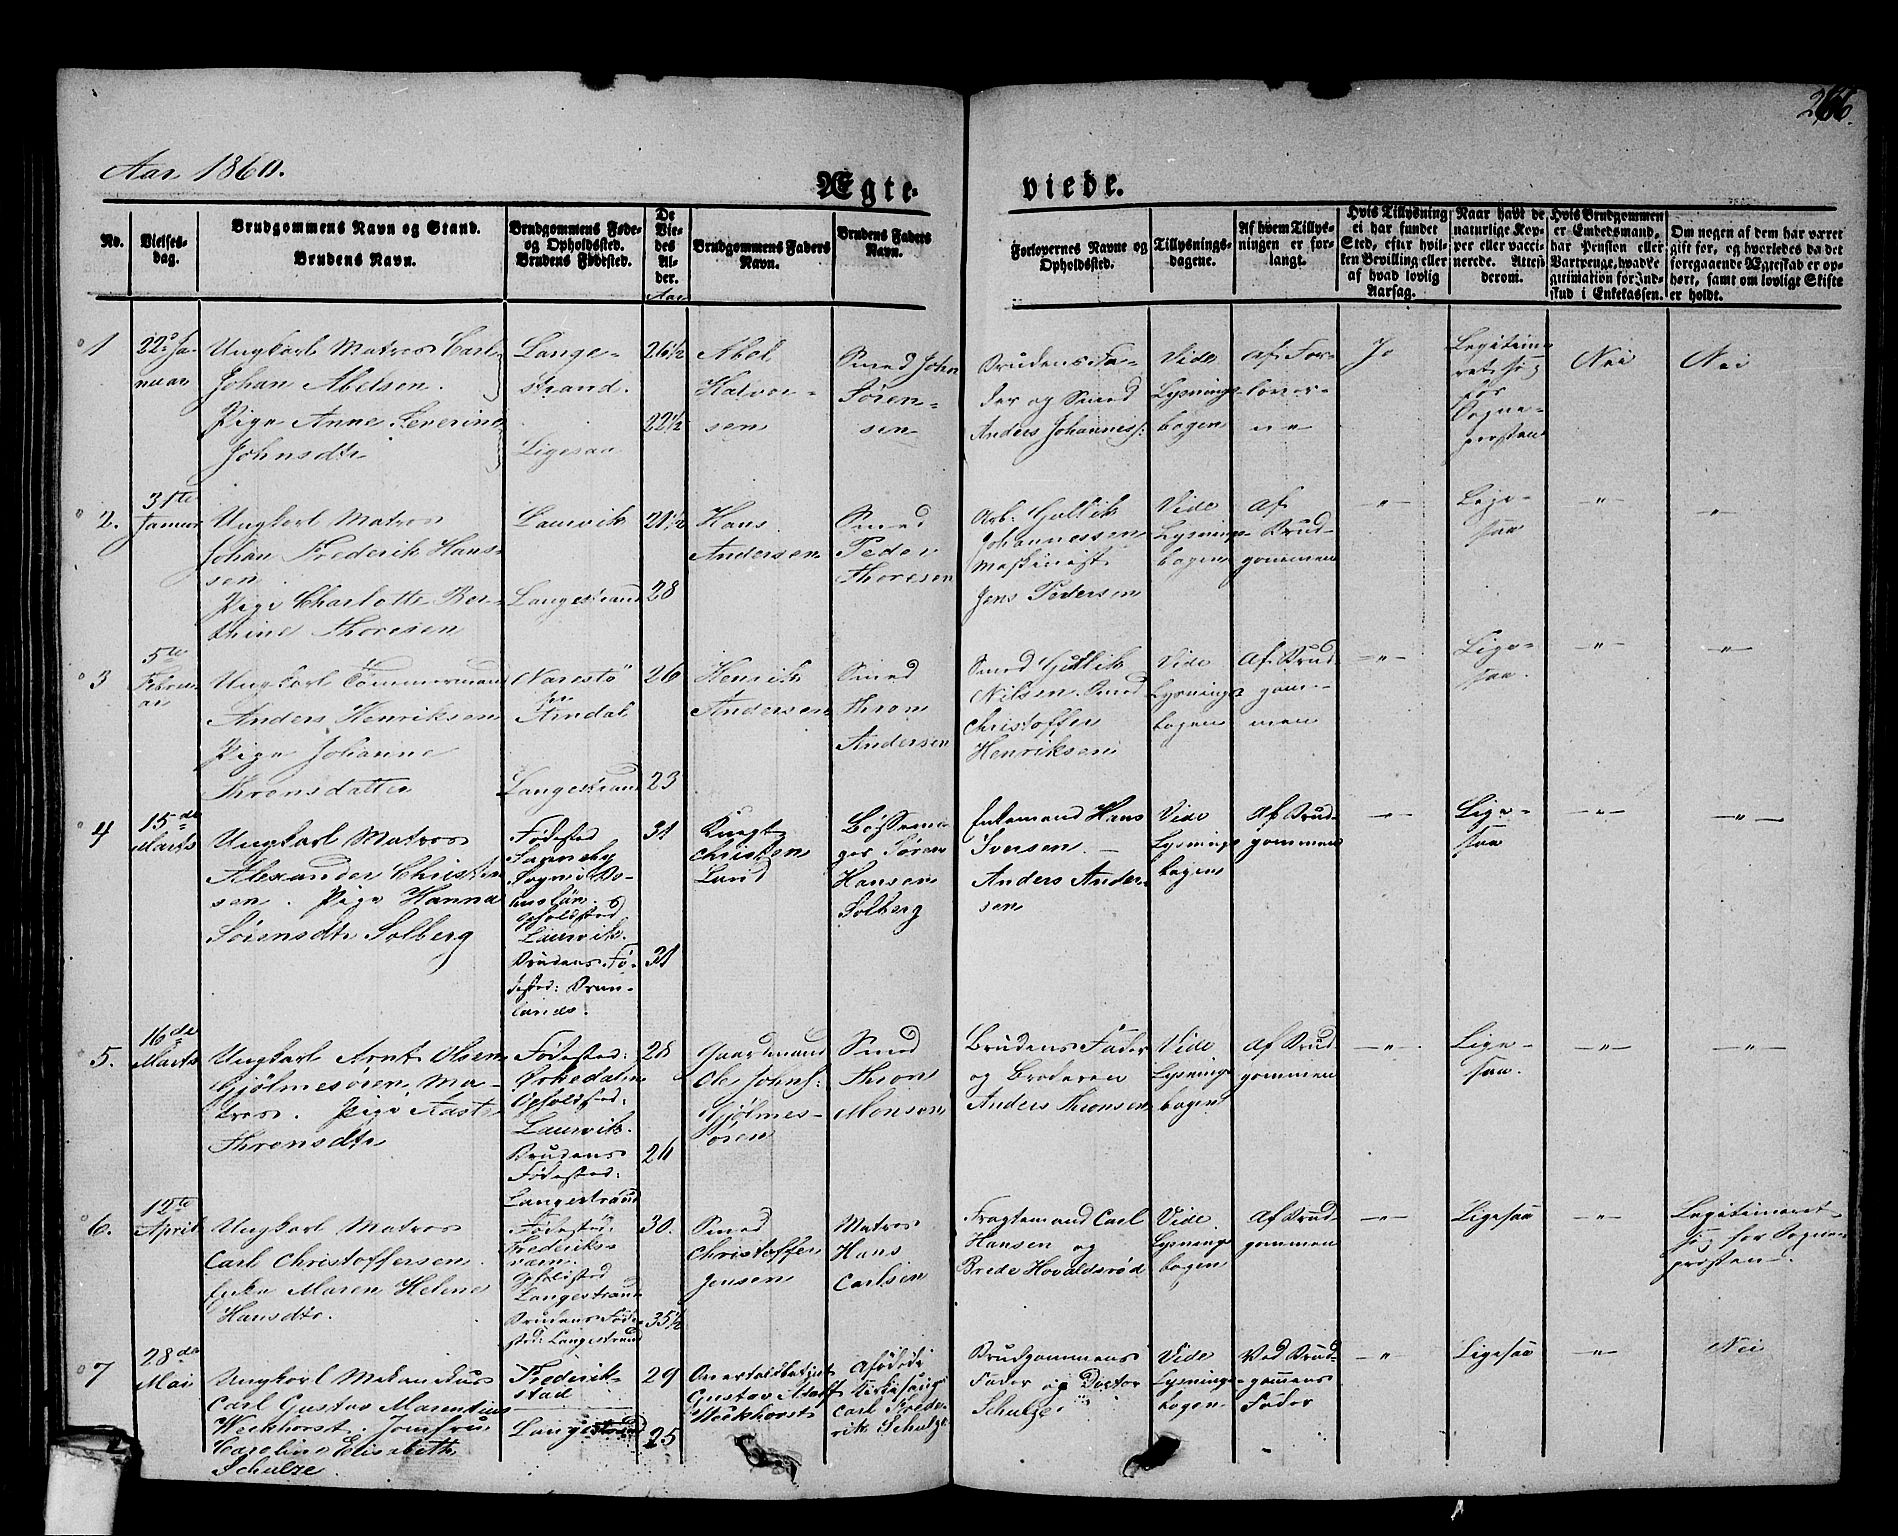 266.
Aar 1860.
Ægte-
viede.
No.
Vielses-
dag.
Brudgommens Navn og Stand.
Brudens Navn.
Brudgommens Føde-
og Opholdssted.
Brudens Fødested.
De
Vie-
des
Al-
der.
Aar
Brudgommens Faders
Navn.
Brudens Faders
Navn.
Forlovernes Navne og
Opholdssted.
Tillysnings-
dagene.
Af hvem Tillys-
ningen er for-
langt.
Hvis Tillysning
ei har fundet
Sted, efter hvil-
ken Bevilling eller
af hvad lovlig
Aarsag.
Naar havt de
naturlige Kop-
per eller vacci-
nerede. Attest
derom.
Hvis Brudgommen
er Embedsmand,
har Pension eller
Vartpenge, hvad Le-
gitimation for Ind-
skud i Enkekassen.
Om nogen af dem har været
gift før, og hvorledes da det
foregaaende Ægteskab er op-
hørt, samt om lovligt Skifte
er holdt.
1
22de Ja-
nuar
Ungkarl Matros Carl
Johan Abelsen.
Pige Anne Severine
Johnsdtr
Lange-
strand.
Ligesaa
26½
22½
Abel
Halvor-
sen
Smed John
Søren-
sen
Brudens Fa-
der og Smed
Anders Johanness:
Vide
Lysnings-
bogen
Af For-
lover-
ne
Jo
Legitime-
ret sig
for
Sogne-
presten
Nei
Nei
2.
31te
Januar
Ungkarl Matros
Johan Frederik Hans-
sen
Pige Charlotte Ber-
thine Thoresen
Laurvik
Langestrand
21½
28
Hans
Andersen
Smed
Peder
Thoresen
Arb: Gullik
Johannessen
Maskinist
Jens Pedersen
Vide
Lysnings-
bogen
Af
Brud-
gommen
—"—
Lige-
saa
—"—
—"—
3
5te
Februar
Ungkarl Tømmermand
Anders Henriksen
Pige Johanne
Thronsdatter
Narestö
per
Arndal
Langestrand
26
23
Henrik
Andersen
Smed
Thron
Andersen
Smed Gullik
Nilsen. Smed
Christoffer
Henriksen
Vide
Lysnings-
bogen
Af Brud
gom-
men
—"—
Lige-
saa.
—"—
—"—
4
15de
Marts
Ungkarl Matros
Alexander Christen
sen. Pige Hanna
Sørensdtr Solberg
Fødested
Opholdsted
Laurvik.
Brudens Fø-
dested: Brun-
lands.
31
31
Christen
Lund
Søren
Hansen
Solberg
Enkemand Hans
Iversen. —
Anders Ander-
sen
Vide
Lysnings
bogen
Af Brud-
gommen
—"—
Lige-
saa
—"—
—"—
5.
16de
Marts
Ungkarl Arnt Olsen
Gjölmesören, Ma-
tros. Pige Aaste
Thronsdtr
Fødested:
Ørkedalen
Opholdsted:
Laurvik.
Brudens
Fødested:
Langestrand
28
26
Gaardmand
Ole Johns:
Gjölmes-
sören
Smed
Thron
Monsen
Brudens Fader
og Broderen
Anders Thronsen
Vide
Lysnings
bogen
Af Brud
gommen
—"—
Lige-
saa.
—"—
—"—
6.
12te
April
Ungkarl Matros
Carl Christoffersen.
Enke Maren Helene
Hansdtr.
Fødested:
Frederiks-
værn.
Opholdsted
Langestrand
Brudens Føde-
sted: Langestrand
30.
35½
Smed
Christoffer
Jensen
Matros
Hans
Carlsen
Fragtemand Carl
Hansen og
Brede Hovaldsrød
Vide
Lysnings
bogen
Af Brud-
gommen
—"—
Ligesaa
—"—
Legitimeret
sig for Sogne-
presten.
7
28de
Mai
Ungkarl Mekanikus
Carl Gustav Marentius
Weckhorst Jomfru
Caroline Elisabeth
Schulze.
Frederik-
stad
Langestrand
29
25
Overtoldbetjent
Gustav Adolf
Weckhorst
Afdøde
Carl Frede-
rik Schulze
Brudgommens
Fader og Doctor
Schulze
Vide
Lysnings-
bogen
Ved Brud-
gommens
Fader
—"—
Ligesaa
—"—
Nei